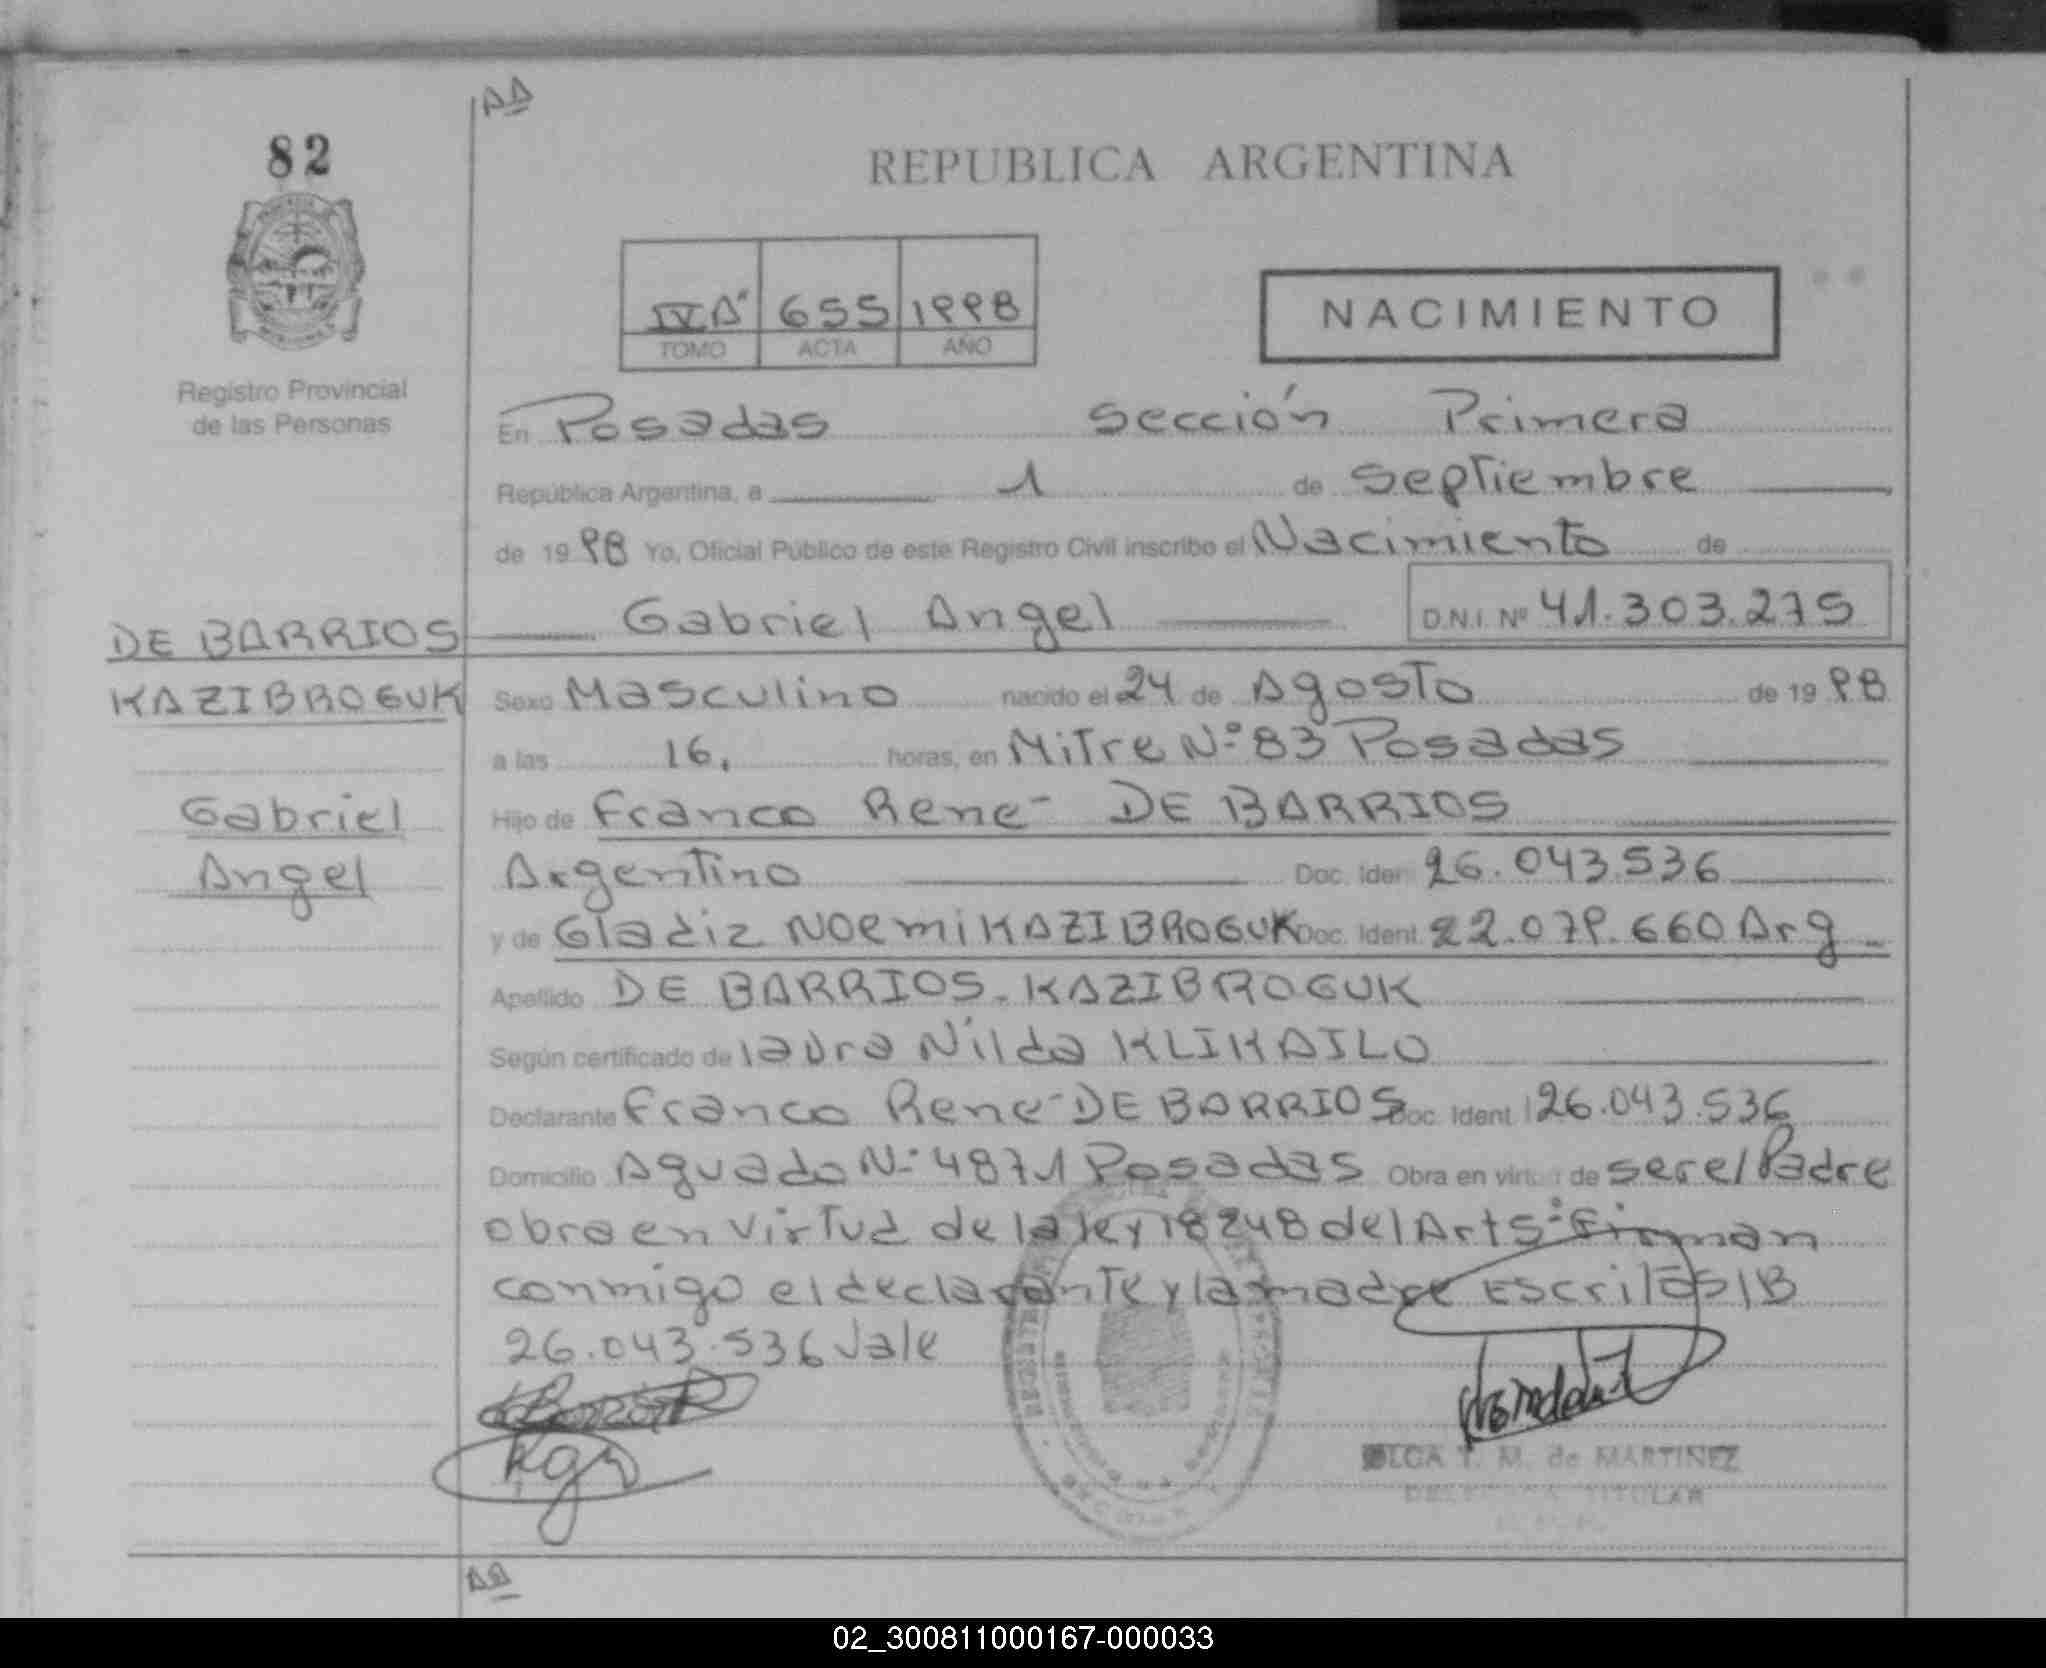 AA
82
REPUBLICA ARGENTINA
IV A° 655 1998
TOMO ACTA AÑO
NACIMIENTO
Registro Provincial
de las Personas
En Posadas Sección Primera
República Argentina, a 1 de Septiembre
de 1998 Yo, Oficial Público de este Registro Civil inscribo el Nacimiento de
DE BARRIOS Gabriel Angel D.N.I. Nº 41.303.275
KAZIBROGUK Sexo Masculino nacido el 24 de Agosto de 1998
a las 16, horas, en Mitre Nº 83 Posadas
Gabriel Hijo de Franco René DE BARRIOS
Angel Argentino Doc. Iden 26.043.536
y de Gladiz Noemi KAZIBROGUK Doc. Ident. 22.079.660 Arg
Apellido DE BARRIOS - KAZIBROGUK
Según certificado de laura Nilda KLIKAILO
Declarante Franco René DE BARRIOS Doc. Ident 26.043.536
Domicilio Aguado Nº 4871 Posadas Obra en virtud de ser el Padre
obra en virtud de la ley 18248 del Art 5º Firman
conmigo el declarante y la madre Escritos / B
26.043.536 Vale
OLGA T. M. de MARTINEZ
TITULAR
AA
02_300811000167-000033